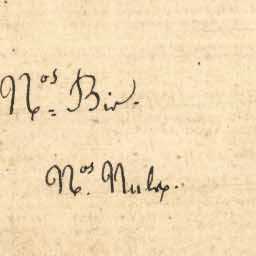 N.os Bir.
N.os Nulox.